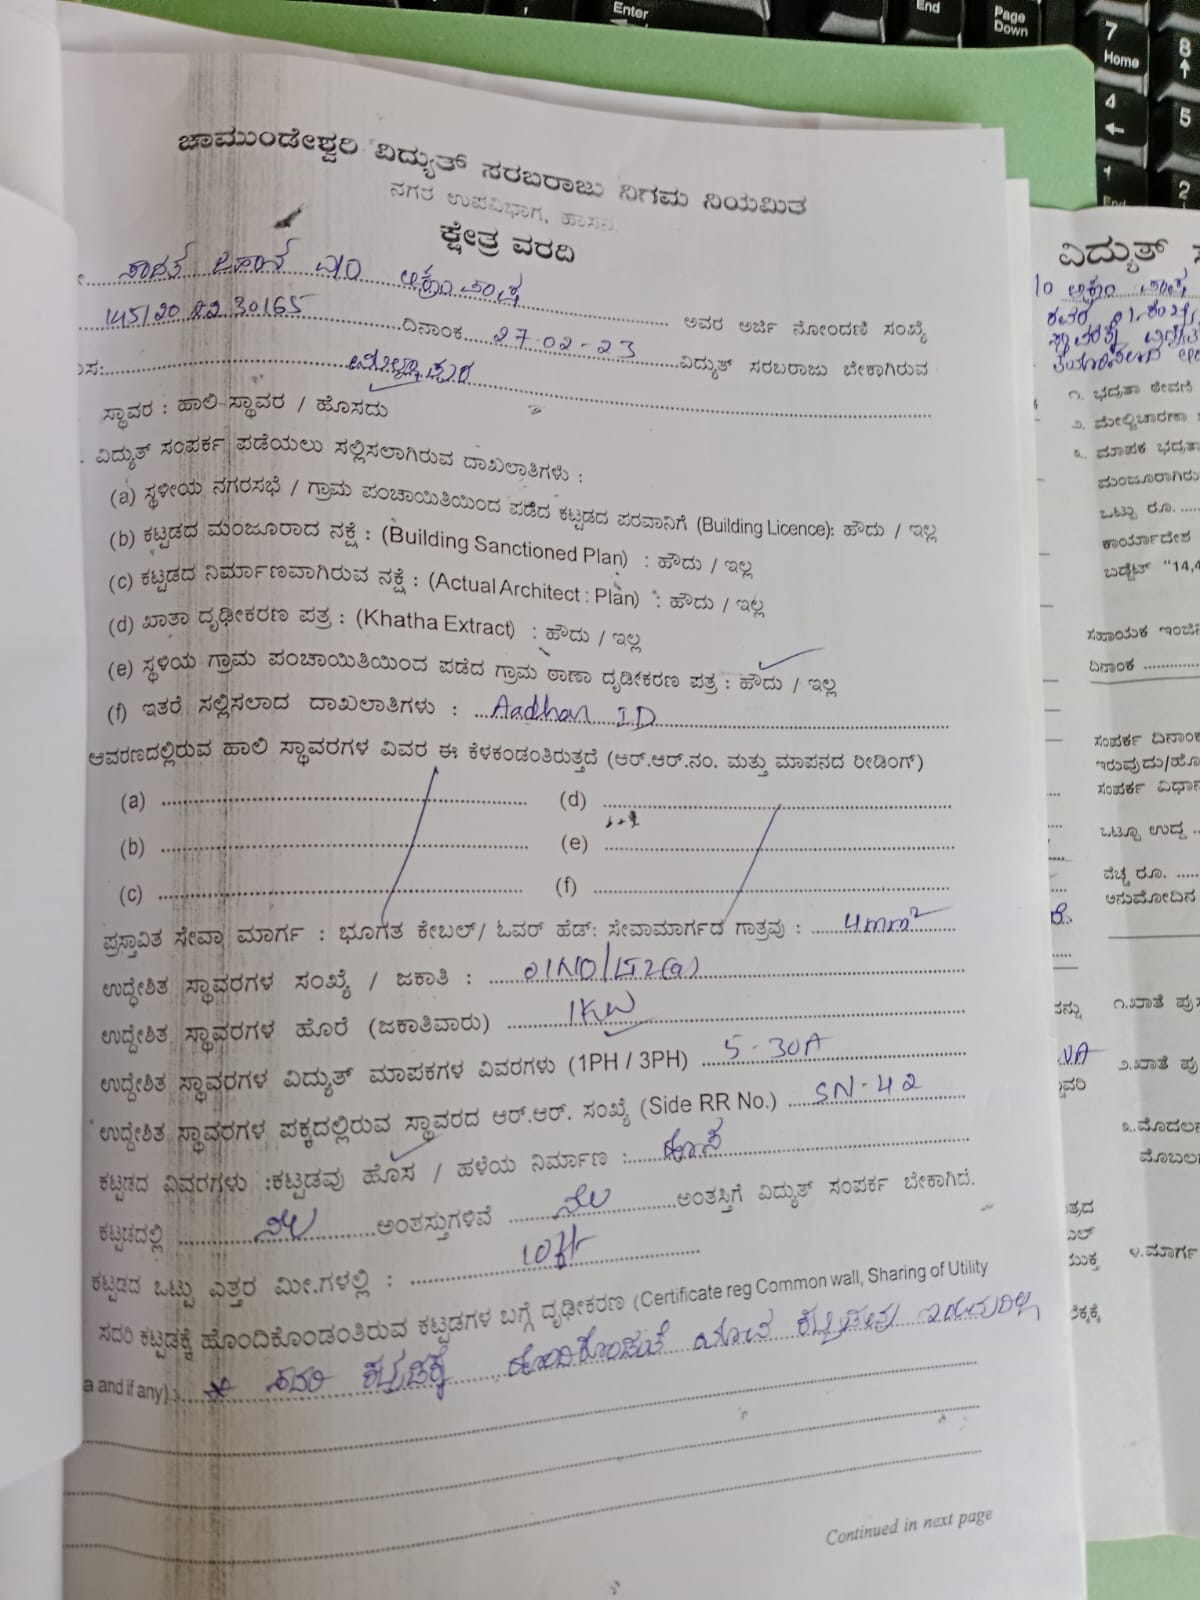 ಚಾಮುಂಡೇಶ್ವರಿ ವಿದ್ಯುತ್ ಸರಬರಾಜು ನಿಗಮ ನಿಯಮಿತ
ನಗರ ಉಪವಿಭಾಗ, ಹಾಸನ.
ಕ್ಷೇತ್ರ ವರದಿ
ಅವರ ಅರ್ಜಿ ನೋಂದಣಿ ಸಂಖ್ಯೆ
ದಿನಾಂಕ 27-02-23 ವಿದ್ಯುತ್ ಸರಬರಾಜು ಬೇಕಾಗಿರುವ
ಸ್ಥಾವರ : ಹಾಲಿ ಸ್ಥಾವರ / ಹೊಸದು
ವಿದ್ಯುತ್ ಸಂಪರ್ಕ ಪಡೆಯಲು ಸಲ್ಲಿಸಲಾಗಿರುವ ದಾಖಲಾತಿಗಳು :
(a) ಸ್ಥಳೀಯ ನಗರಸಭೆ / ಗ್ರಾಮ ಪಂಚಾಯಿತಿಯಿಂದ ಪಡೆದ ಕಟ್ಟಡದ ಪರವಾನಿಗೆ (Building Licence): ಹೌದು / ಇಲ್ಲ
(b) ಕಟ್ಟಡದ ಮಂಜೂರಾದ ನಕ್ಷೆ : (Building Sanctioned Plan) : ಹೌದು / ಇಲ್ಲ
(c) ಕಟ್ಟಡದ ನಿರ್ಮಾಣವಾಗಿರುವ ನಕ್ಷೆ : (Actual Architect : Plan) : ಹೌದು / ಇಲ್ಲ
(d) ಖಾತಾ ದೃಢೀಕರಣ ಪತ್ರ : (Khatha Extract) : ಹೌದು / ಇಲ್ಲ
(e) ಸ್ಥಳಿಯ ಗ್ರಾಮ ಪಂಚಾಯಿತಿಯಿಂದ ಪಡೆದ ಗ್ರಾಮ ಠಾಣಾ ದೃಢೀಕರಣ ಪತ್ರ : ಹೌದು / ಇಲ್ಲ
(f) ಇತರೆ ಸಲ್ಲಿಸಲಾದ ದಾಖಲಾತಿಗಳು : Aadhar ID
ಆವರಣದಲ್ಲಿರುವ ಹಾಲಿ ಸ್ಥಾವರಗಳ ವಿವರ ಈ ಕೆಳಕಂಡಂತಿರುತ್ತದೆ (ಆರ್.ಆರ್.ನಂ. ಮತ್ತು ಮಾಪನದ ರೀಡಿಂಗ್)
(a) (d)
(b) (e)
(c) (f)
ಪ್ರಸ್ತಾವಿತ ಸೇವಾ ಮಾರ್ಗ : ಭೂಗತ ಕೇಬಲ್/ ಓವರ್ ಹೆಡ್: ಸೇವಾಮಾರ್ಗದ ಗಾತ್ರವು : 4mm²
ಉದ್ಧೇಶಿತ ಸ್ಥಾವರಗಳ ಸಂಖ್ಯೆ / ಜಕಾತಿ :
ಉದ್ದೇಶಿತ ಸ್ಥಾವರಗಳ ಹೊರೆ (ಜಕಾತಿವಾರು) 1KW
ಉದ್ದೇಶಿತ ಸ್ಥಾವರಗಳ ವಿದ್ಯುತ್ ಮಾಪಕಗಳ ವಿವರಗಳು (1PH / 3PH) 5-30A
ಉದ್ದೇಶಿತ ಸ್ಥಾವರಗಳ ಪಕ್ಕದಲ್ಲಿರುವ ಸ್ಥಾವರದ ಆರ್.ಆರ್. ಸಂಖ್ಯೆ (Side RR No.) SN-42
ಕಟ್ಟಡದ ವಿವರಗಳು :ಕಟ್ಟಡವು ಹೊಸ / ಹಳೆಯ ನಿರ್ಮಾಣ : ಹೊಸ
ಕಟ್ಟಡದಲ್ಲಿ ನೆಲ ಅಂತಸ್ತುಗಳಿವೆ ನೆಲ ಅಂತಸ್ತಿಗೆ ವಿದ್ಯುತ್ ಸಂಪರ್ಕ ಬೇಕಾಗಿದೆ.
ಕಟ್ಟಡದ ಒಟ್ಟು ಎತ್ತರ ಮೀ.ಗಳಲ್ಲಿ : 10ft
ಸದರಿ ಕಟ್ಟಡಕ್ಕೆ ಹೊಂದಿಕೊಂಡಂತಿರುವ ಕಟ್ಟಡಗಳ ಬಗ್ಗೆ ದೃಢೀಕರಣ (Certificate reg Common wall, Sharing of Utility
a and if any) : ಸದರಿ ಕಟ್ಟಡಕ್ಕೆ ಹೊಂದಿಕೊಂಡಂತೆ ಯಾವ ಕಟ್ಟಡವು ಇರುವುದಿಲ್ಲ
Continued in next page
ವಿದ್ಯುತ್
೧. ಭದ್ರತಾ ಠೇವಣಿ
೨. ಮೇಲ್ವಿಚಾರಣಾ
೩. ಮಾಪಕ ಭದ್ರತಾ
ಮಂಜೂರಾಗಿರು
ಒಟ್ಟು ರೂ.
ಕಾರ್ಯಾದೇಶ
ಬಡ್ಜೆಟ್ "14,4
ಸಹಾಯಕ ಇಂಜಿನಿ
ದಿನಾಂಕ
ಸಂಪರ್ಕ ದಿನಾಂಕ
ಇರುವುದು/ಹೊ
ಸಂಪರ್ಕ ವಿಧಾನ
ಒಟ್ಟೂ ಉದ್ದ
ವೆಚ್ಚ ರೂ.
ಅನುಮೋದಿನ
೧.ಖಾತೆ ಪು
೨.ಖಾತೆ ಪು
೩.ಮೊದಲ
ಮೊಬಲ
೪.ಮಾರ್ಗ
Enter
End
Page Down
7 Home
8
4
5
1 End
2